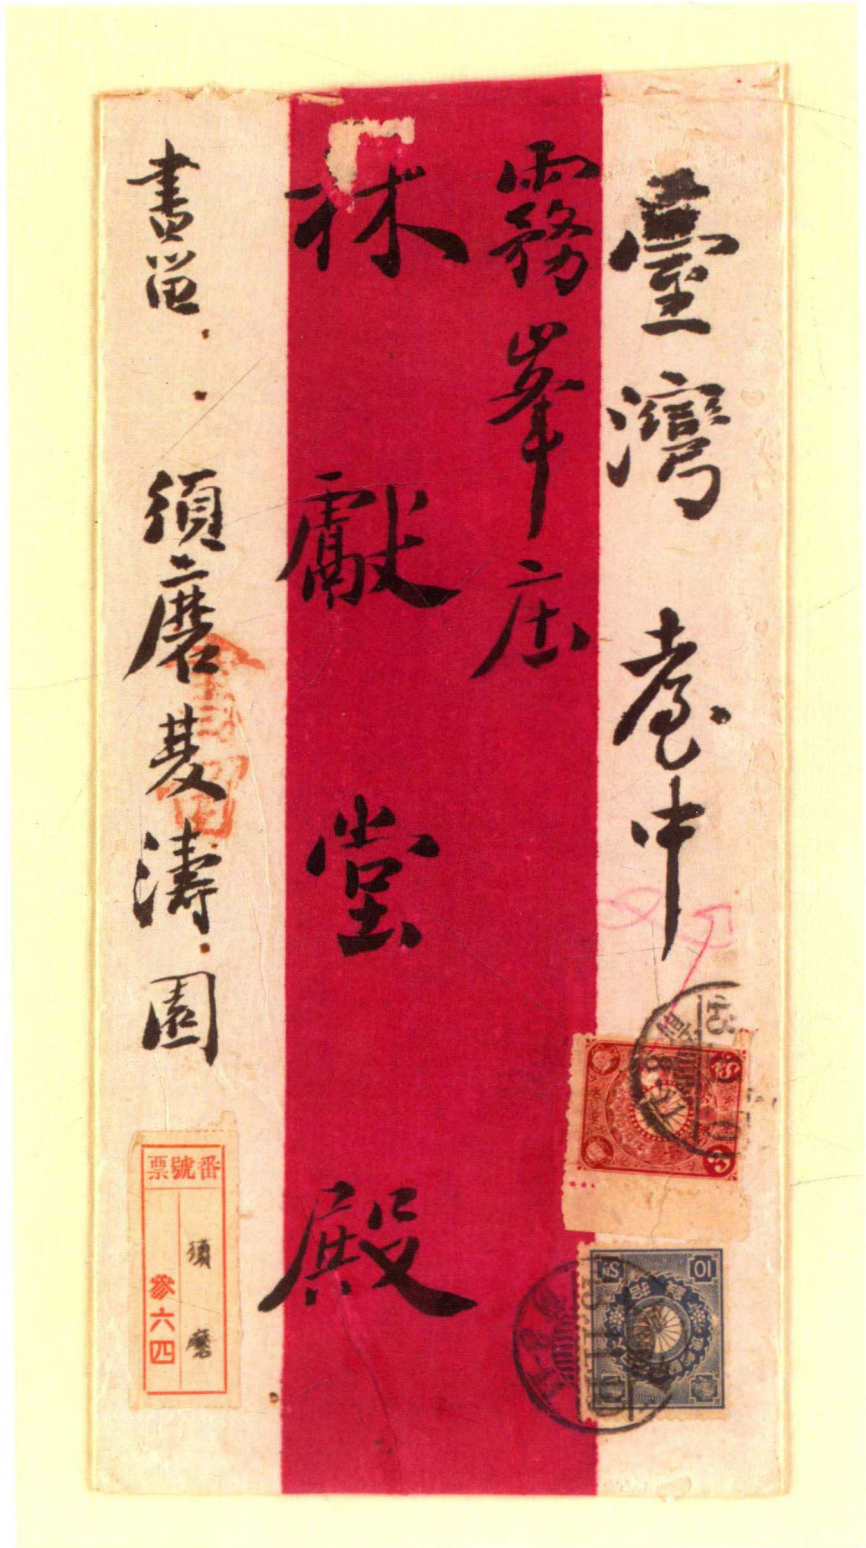 臺灣 臺中
霧峯庄
林獻堂 殿
書留
須磨 双濤園
番號票
須磨
參六四
10 Sn
43